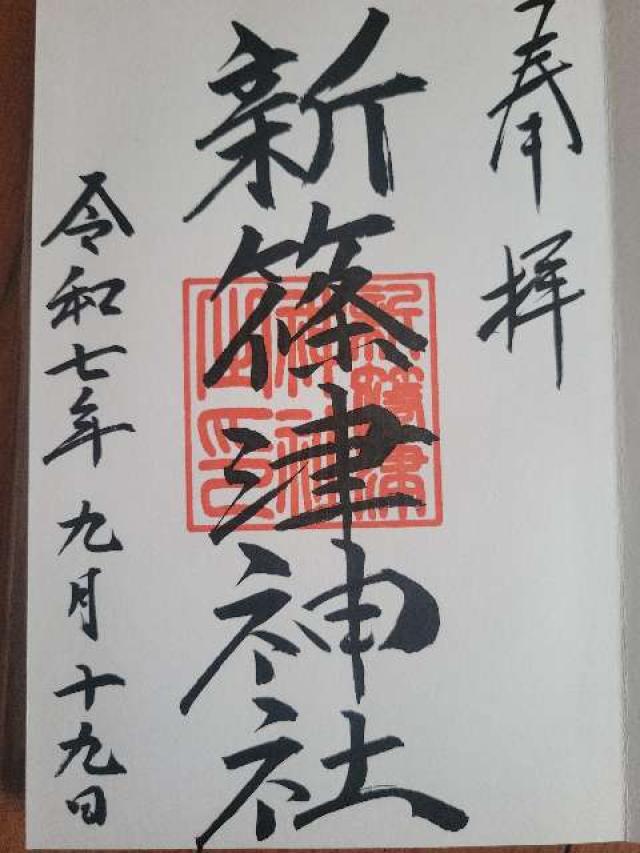 奉拝
新篠津神社
新篠津神社之印
令和七年九月十九日